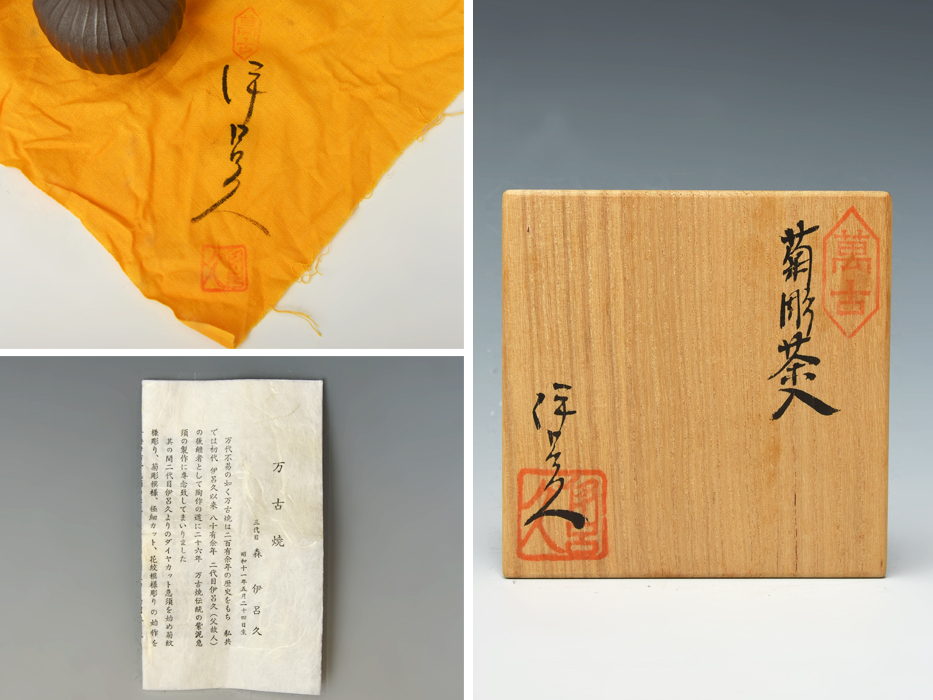 萬古
伊呂久
万古焼
三代目 森伊呂久
昭和十一年五月二十四日生
万代不易の如く万古焼は二百有余年の歴史をもち 私共
では初代 伊呂久以来 八十有余年 二代目伊呂久(父故人)
の後継者として陶作の道に二十六年 万古焼伝統の紫泥急
須の製作に専念致してまいりました
其の間二代目伊呂久よりのダイヤカット急須を始め菊紋
様彫り、菊彫模様、極細カット、花紋模様彫りの始作を
萬古
菊彫茶入
伊呂久